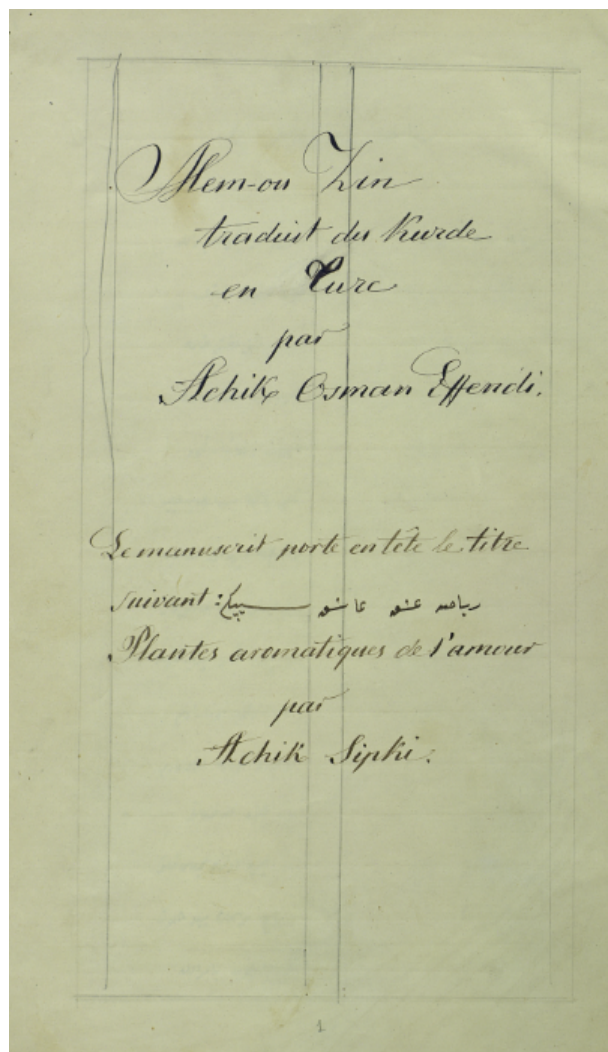 Mem-ou Zin
traduit du Kurde
en Turc
par
Achik Osman Effendi.
Le manuscrit porte en tête le titre
suivant : عشق عاشق سپیکی
Plantes aromatiques de l'amour
par
Achik Sipki.
1